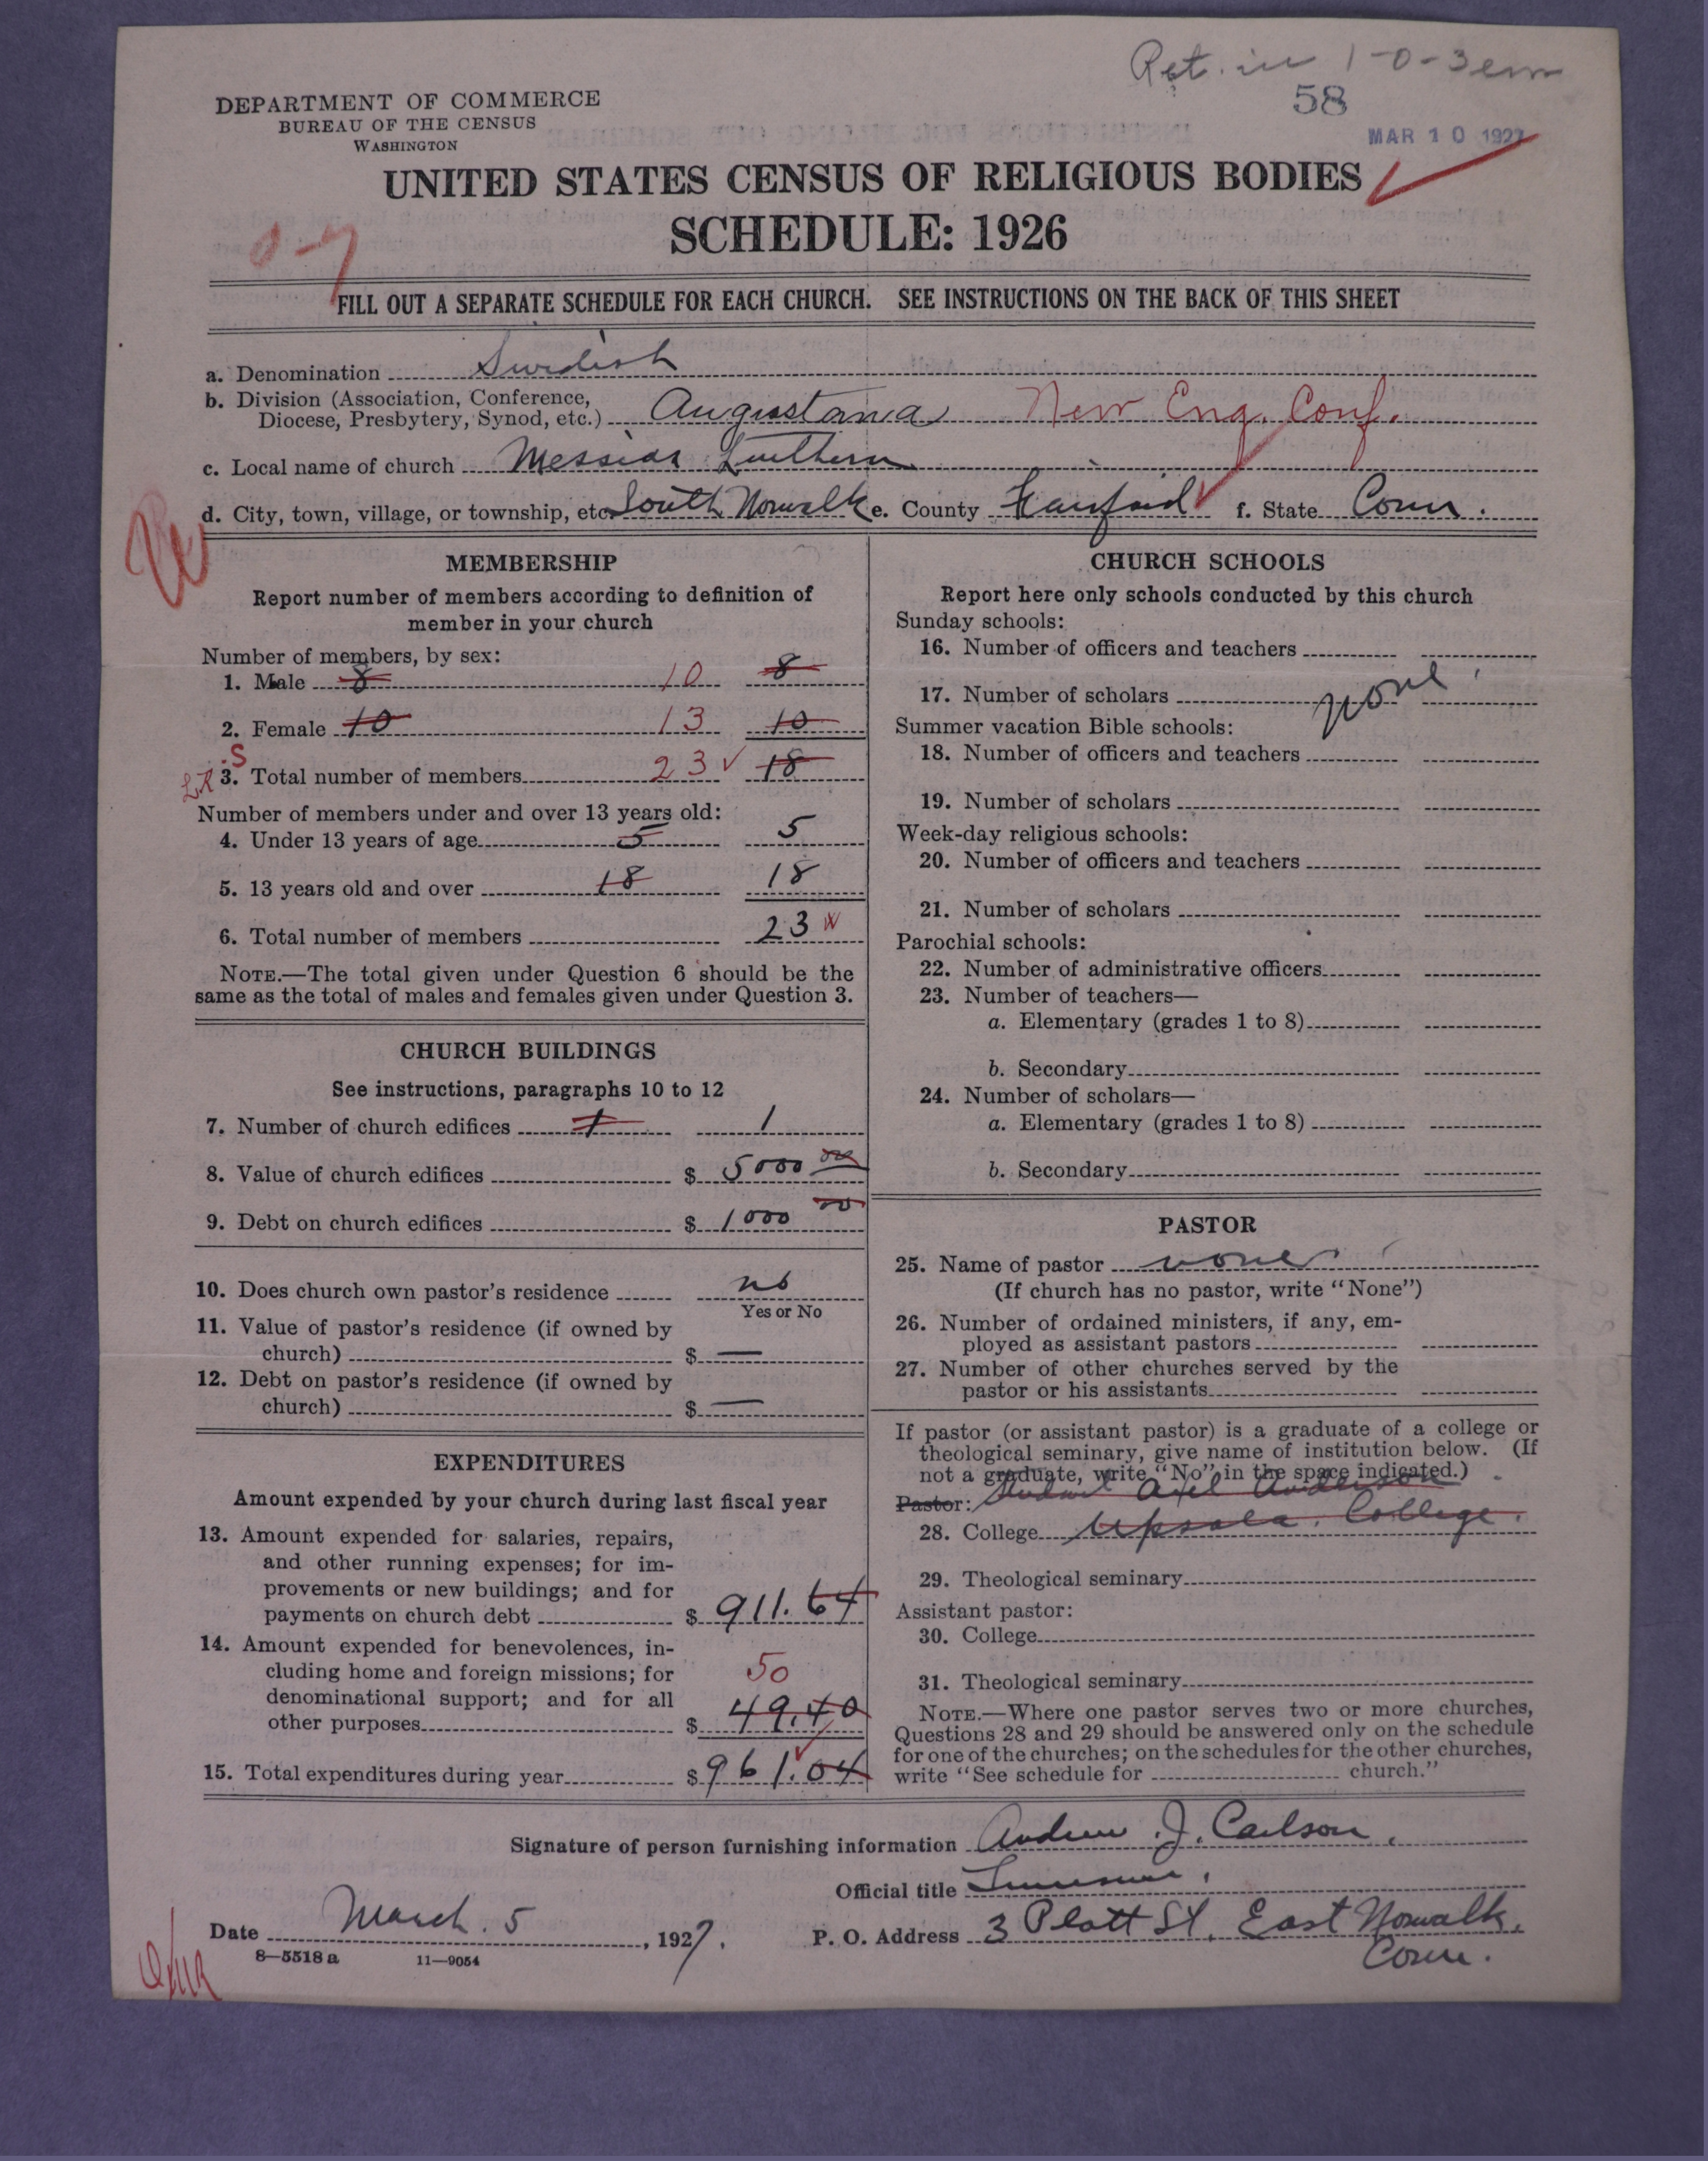 Ret. in 1-0-3 em
58
MAR 10 1927
DEPARTMENT OF COMMERCE
BUREAU OF THE CENSUS
WASHINGTON
UNITED STATES CENSUS OF RELIGIOUS BODIES
SCHEDULE: 1926
0-7
FILL OUT A SEPARATE SCHEDULE FOR EACH CHURCH. SEE INSTRUCTIONS ON THE BACK OF THIS SHEET
a. Denomination Swedish
b. Division (Association, Conference,
Diocese, Presbytery, Synod, etc.) Augustana New Eng. Conf.
c. Local name of church Messias Luthern
d. City, town, village, or township, etc. South Norwalk e. County Fairfield f. State Conn.
MEMBERSHIP
Report number of members according to definition of
member in your church
Number of members, by sex:
1. Male 8 10 8
2. Female 10 13 10
S
3. Total number of members 23 18
Number of members under and over 13 years old:
4. Under 13 years of age 5 5
5. 13 years old and over 18 18
6. Total number of members 23
NOTE.—The total given under Question 6 should be the
same as the total of males and females given under Question 3.
CHURCH BUILDINGS
See instructions, paragraphs 10 to 12
7. Number of church edifices 1 1
8. Value of church edifices $ 5000 00
9. Debt on church edifices $ 1000 00
10. Does church own pastor's residence no
Yes or No
11. Value of pastor's residence (if owned by
church) $ —
12. Debt on pastor's residence (if owned by
church) $ —
EXPENDITURES
Amount expended by your church during last fiscal year
13. Amount expended for salaries, repairs,
and other running expenses; for im-
provements or new buildings; and for
payments on church debt $ 911.64
14. Amount expended for benevolences, in-
cluding home and foreign missions; for 50
denominational support; and for all
other purposes $ 49.40
15. Total expenditures during year $ 961.04
CHURCH SCHOOLS
Report here only schools conducted by this church
Sunday schools:
16. Number of officers and teachers
17. Number of scholars none
Summer vacation Bible schools:
18. Number of officers and teachers
19. Number of scholars
Week-day religious schools:
20. Number of officers and teachers
21. Number of scholars
Parochial schools:
22. Number of administrative officers
23. Number of teachers—
a. Elementary (grades 1 to 8)
b. Secondary
24. Number of scholars—
a. Elementary (grades 1 to 8)
b. Secondary
PASTOR
25. Name of pastor none
(If church has no pastor, write "None")
26. Number of ordained ministers, if any, em-
ployed as assistant pastors
27. Number of other churches served by the
pastor or his assistants
If pastor (or assistant pastor) is a graduate of a college or
theological seminary, give name of institution below. (If
not a graduate, write "No" in the space indicated.)
Pastor: Student Axel Anderson
28. College Upsala College.
29. Theological seminary
Assistant pastor:
30. College
31. Theological seminary
NOTE.—Where one pastor serves two or more churches,
Questions 28 and 29 should be answered only on the schedule
for one of the churches; on the schedules for the other churches,
write "See schedule for church."
Signature of person furnishing information Andrew J. Carlson.
Official title
Date March. 5, 1927. P. O. Address 3 Platt St. East Norwalk.
Conn.
8—5518 a 11—9054